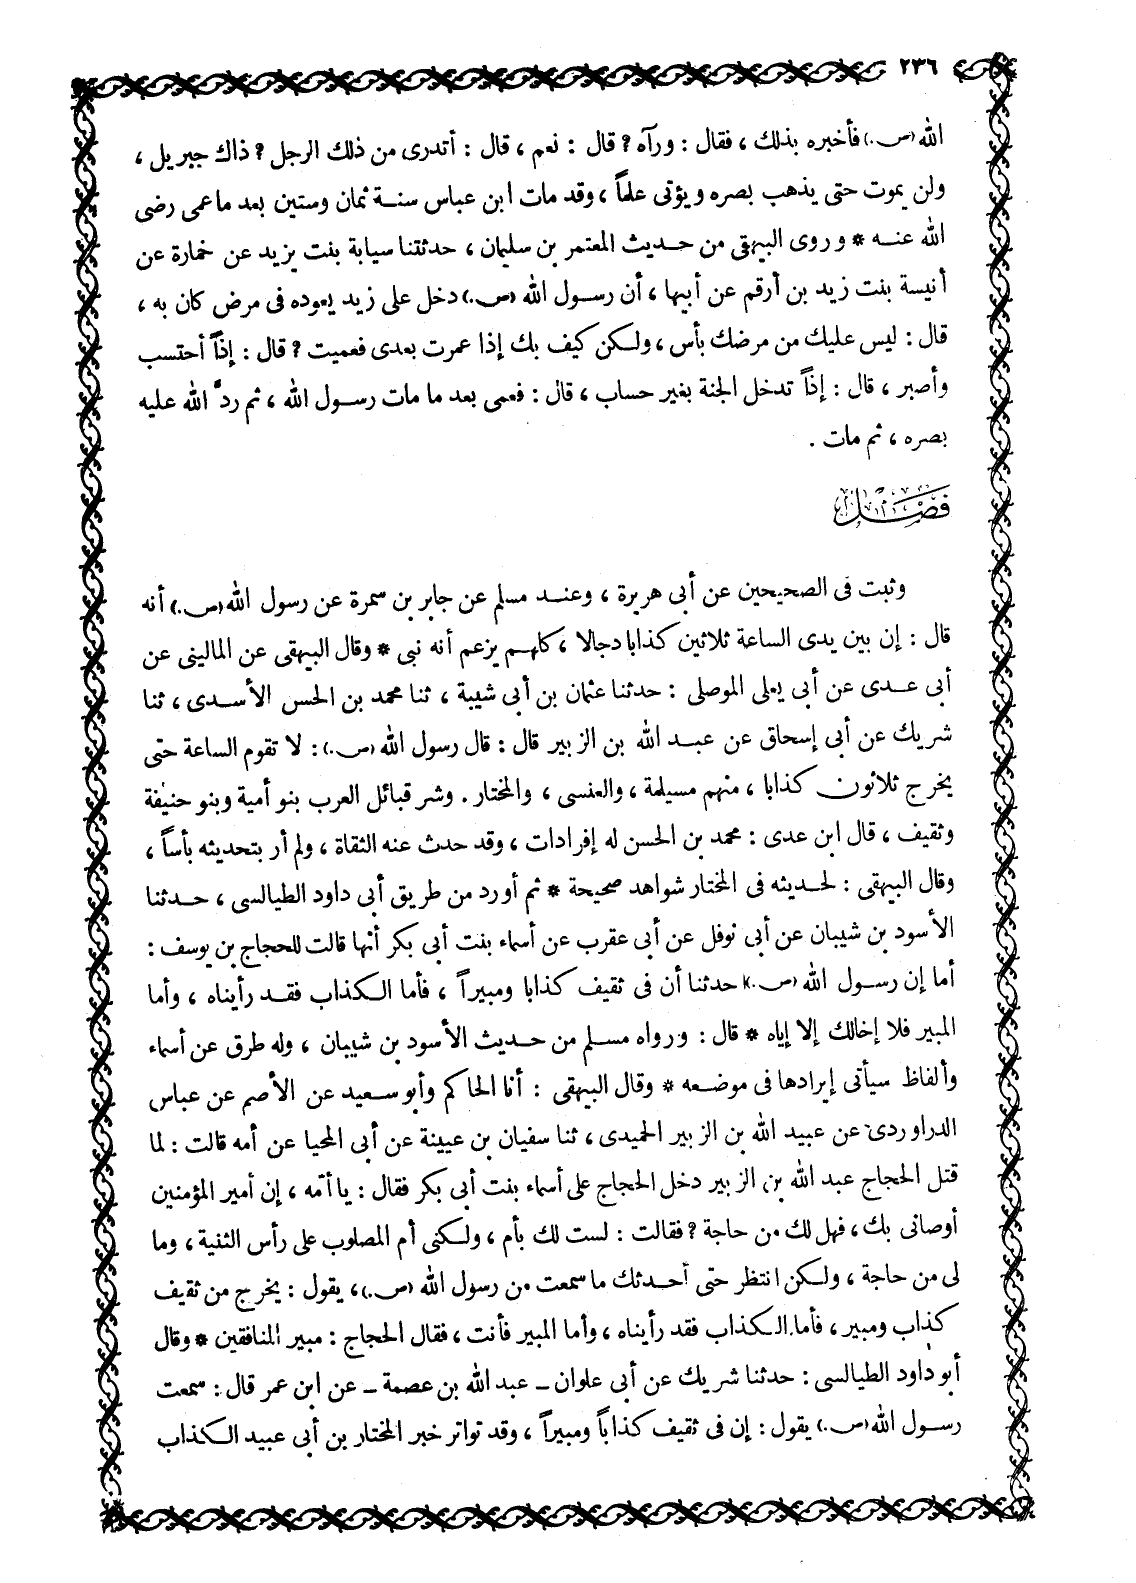 ٢٣٦
الله (ص.) فأخبره بذلك ، فقال : ورآه ? قال : نعم ، قال : أتدرى من ذلك الرجل ? ذاك جبريل ،
ولن يموت حتى يذهب بصره ويؤتى علماً ، وقد مات ابن عباس سنة ثمان وستين بعد ما عمى رضى
الله عنه * وروى البيهقى من حديث المعتمر بن سليمان ، حدثتنا سيابة بنت يزيد عن خمارة عن
أنيسة بنت زيد بن أرقم عن أبيها ، أن رسول الله (ص.) دخل على زيد يعوده فى مرض كان به ،
قال : ليس عليك من مرضك بأس ، ولكن كيف بك إذا عمرت بعدى فعميت ? قال : إذاً أحتسب
وأصبر ، قال : إذاً تدخل الجنة بغير حساب ، قال : فعمى بعد ما مات رسول الله ، ثم ردَّ الله عليه
بصره ، ثم مات .
فصل
وثبت فى الصحيحين عن أبى هريرة ، وعند مسلم عن جابر بن سمرة عن رسول الله (ص.) أنه
قال : إن بين يدى الساعة ثلاثين كذابا دجالا ، كلهم يزعم أنه نبى * وقال البيهقى عن المالينى عن
أبى عدى عن أبى يعلى الموصلى : حدثنا عثمان بن أبى شيبة ، ثنا محمد بن الحسن الأسدى ، ثنا
شريك عن أبى إسحاق عن عبد الله بن الزبير قال : قال رسول الله (ص.) : لا تقوم الساعة حتى
يخرج ثلاثون كذابا ، منهم مسيلمة ، والعنسى ، والمختار . وشر قبائل العرب بنو أمية وبنو حنيفة
وثقيف ، قال ابن عدى : محمد بن الحسن له إفرادات ، وقد حدث عنه الثقاة ، ولم أر بتحديثه بأساً ،
وقال البيهقى : لحديثه فى المختار شواهد صحيحة * ثم أورد من طريق أبى داود الطيالسى ، حدثنا
الأسود بن شيبان عن أبى نوفل عن أبى عقرب عن أسماء بنت أبى بكر أنها قالت للحجاج بن يوسف :
أما إن رسول الله (ص.) حدثنا أن فى ثقيف كذابا ومبيراً ، فأما الكذاب فقد رأيناه ، وأما
المبير فلا إخالك إلا إياه * قال : ورواه مسلم من حديث الأسود بن شيبان ، وله طرق عن أسماء
وألفاظ سيأتى إيرادها فى موضعه * وقال البيهقى : أنا الحاكم وأبو سعيد عن الأصم عن عباس
الدراوردى عن عبيد الله بن الزبير الحميدى ، ثنا سفيان بن عيينة عن أبى المحيا عن أمه قالت : لما
قتل الحجاج عبد الله بن الزبير دخل الحجاج على أسماء بنت أبى بكر فقال : يا أمّه ، إن أمير المؤمنين
أوصانى بك ، فهل لك من حاجة ? فقالت : لست لك بأم ، ولكنى أم المصلوب على رأس الثنية ، وما
لى من حاجة ، ولكن انتظر حتى أحدثك ما سمعت من رسول الله (ص.) ، يقول : يخرج من ثقيف
كذاب ومبير ، فأما الكذاب فقد رأيناه ، وأما المبير فأنت ، فقال الحجاج : مبير المنافقين * وقال
أبو داود الطيالسى : حدثنا شريك عن أبى علوان ــ عبد الله بن عصمة ــ عن ابن عمر قال : سمعت
رسول الله (ص.) يقول : إن فى ثقيف كذاباً ومبيراً ، وقد تواتر خبر المختار بن أبى عبيد الكذاب